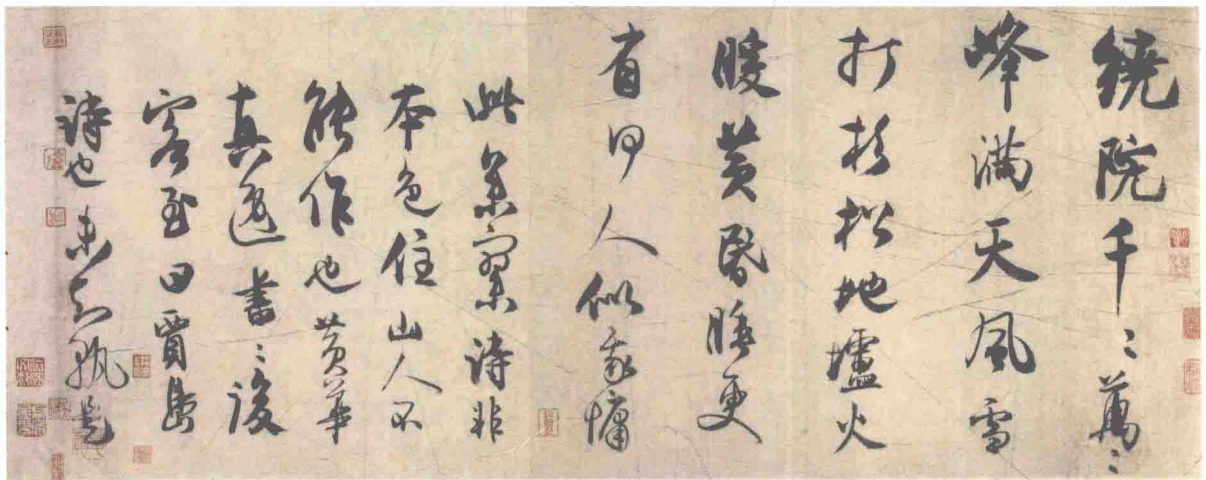 繞院千〻萬〻
峰滿天風雪
打杉松地爐火
暖黃昏睡更
有何人似我慵
此參寥詩非
本色住山人不
能作也黃華
真逸書〻後
客至曰賈島
詩也未知孰是